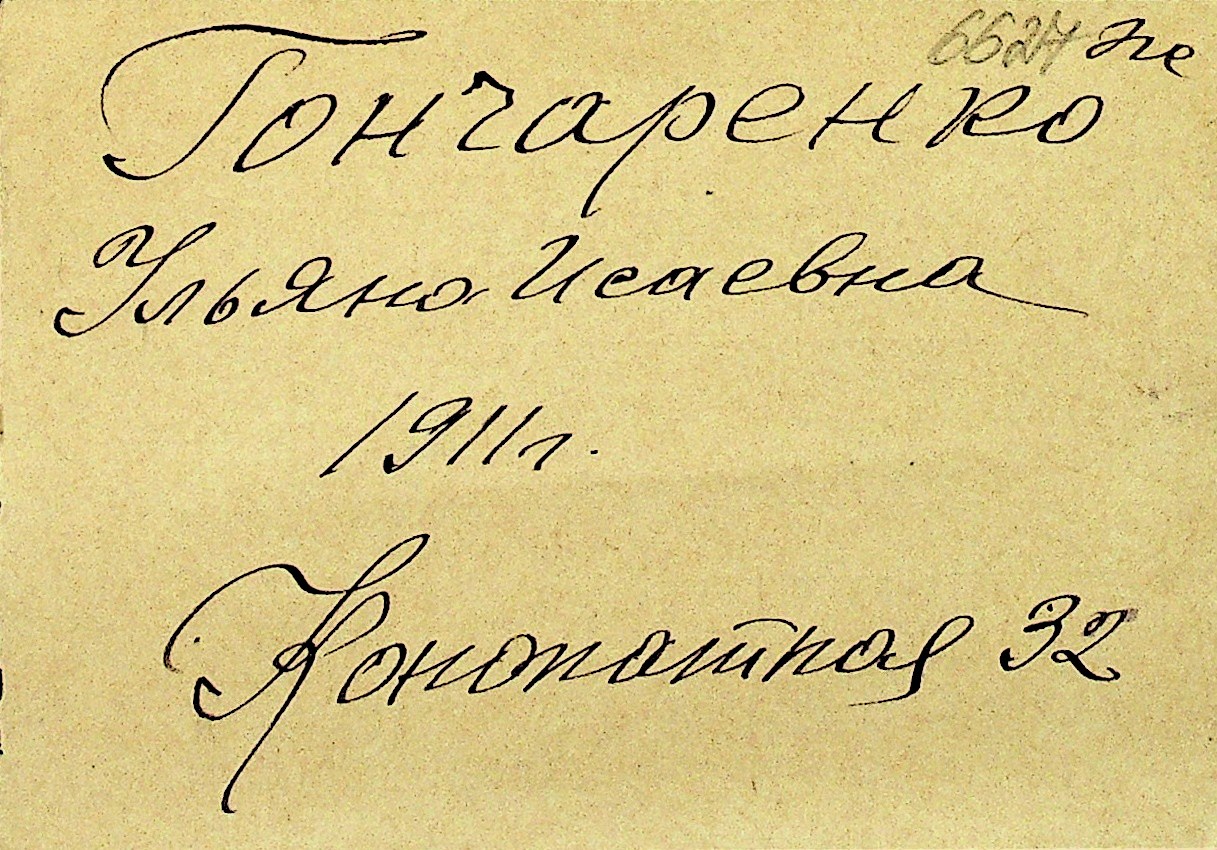 6627 не
Гончаренко
Ульяна Исаевна
1911г.
Канатная 32